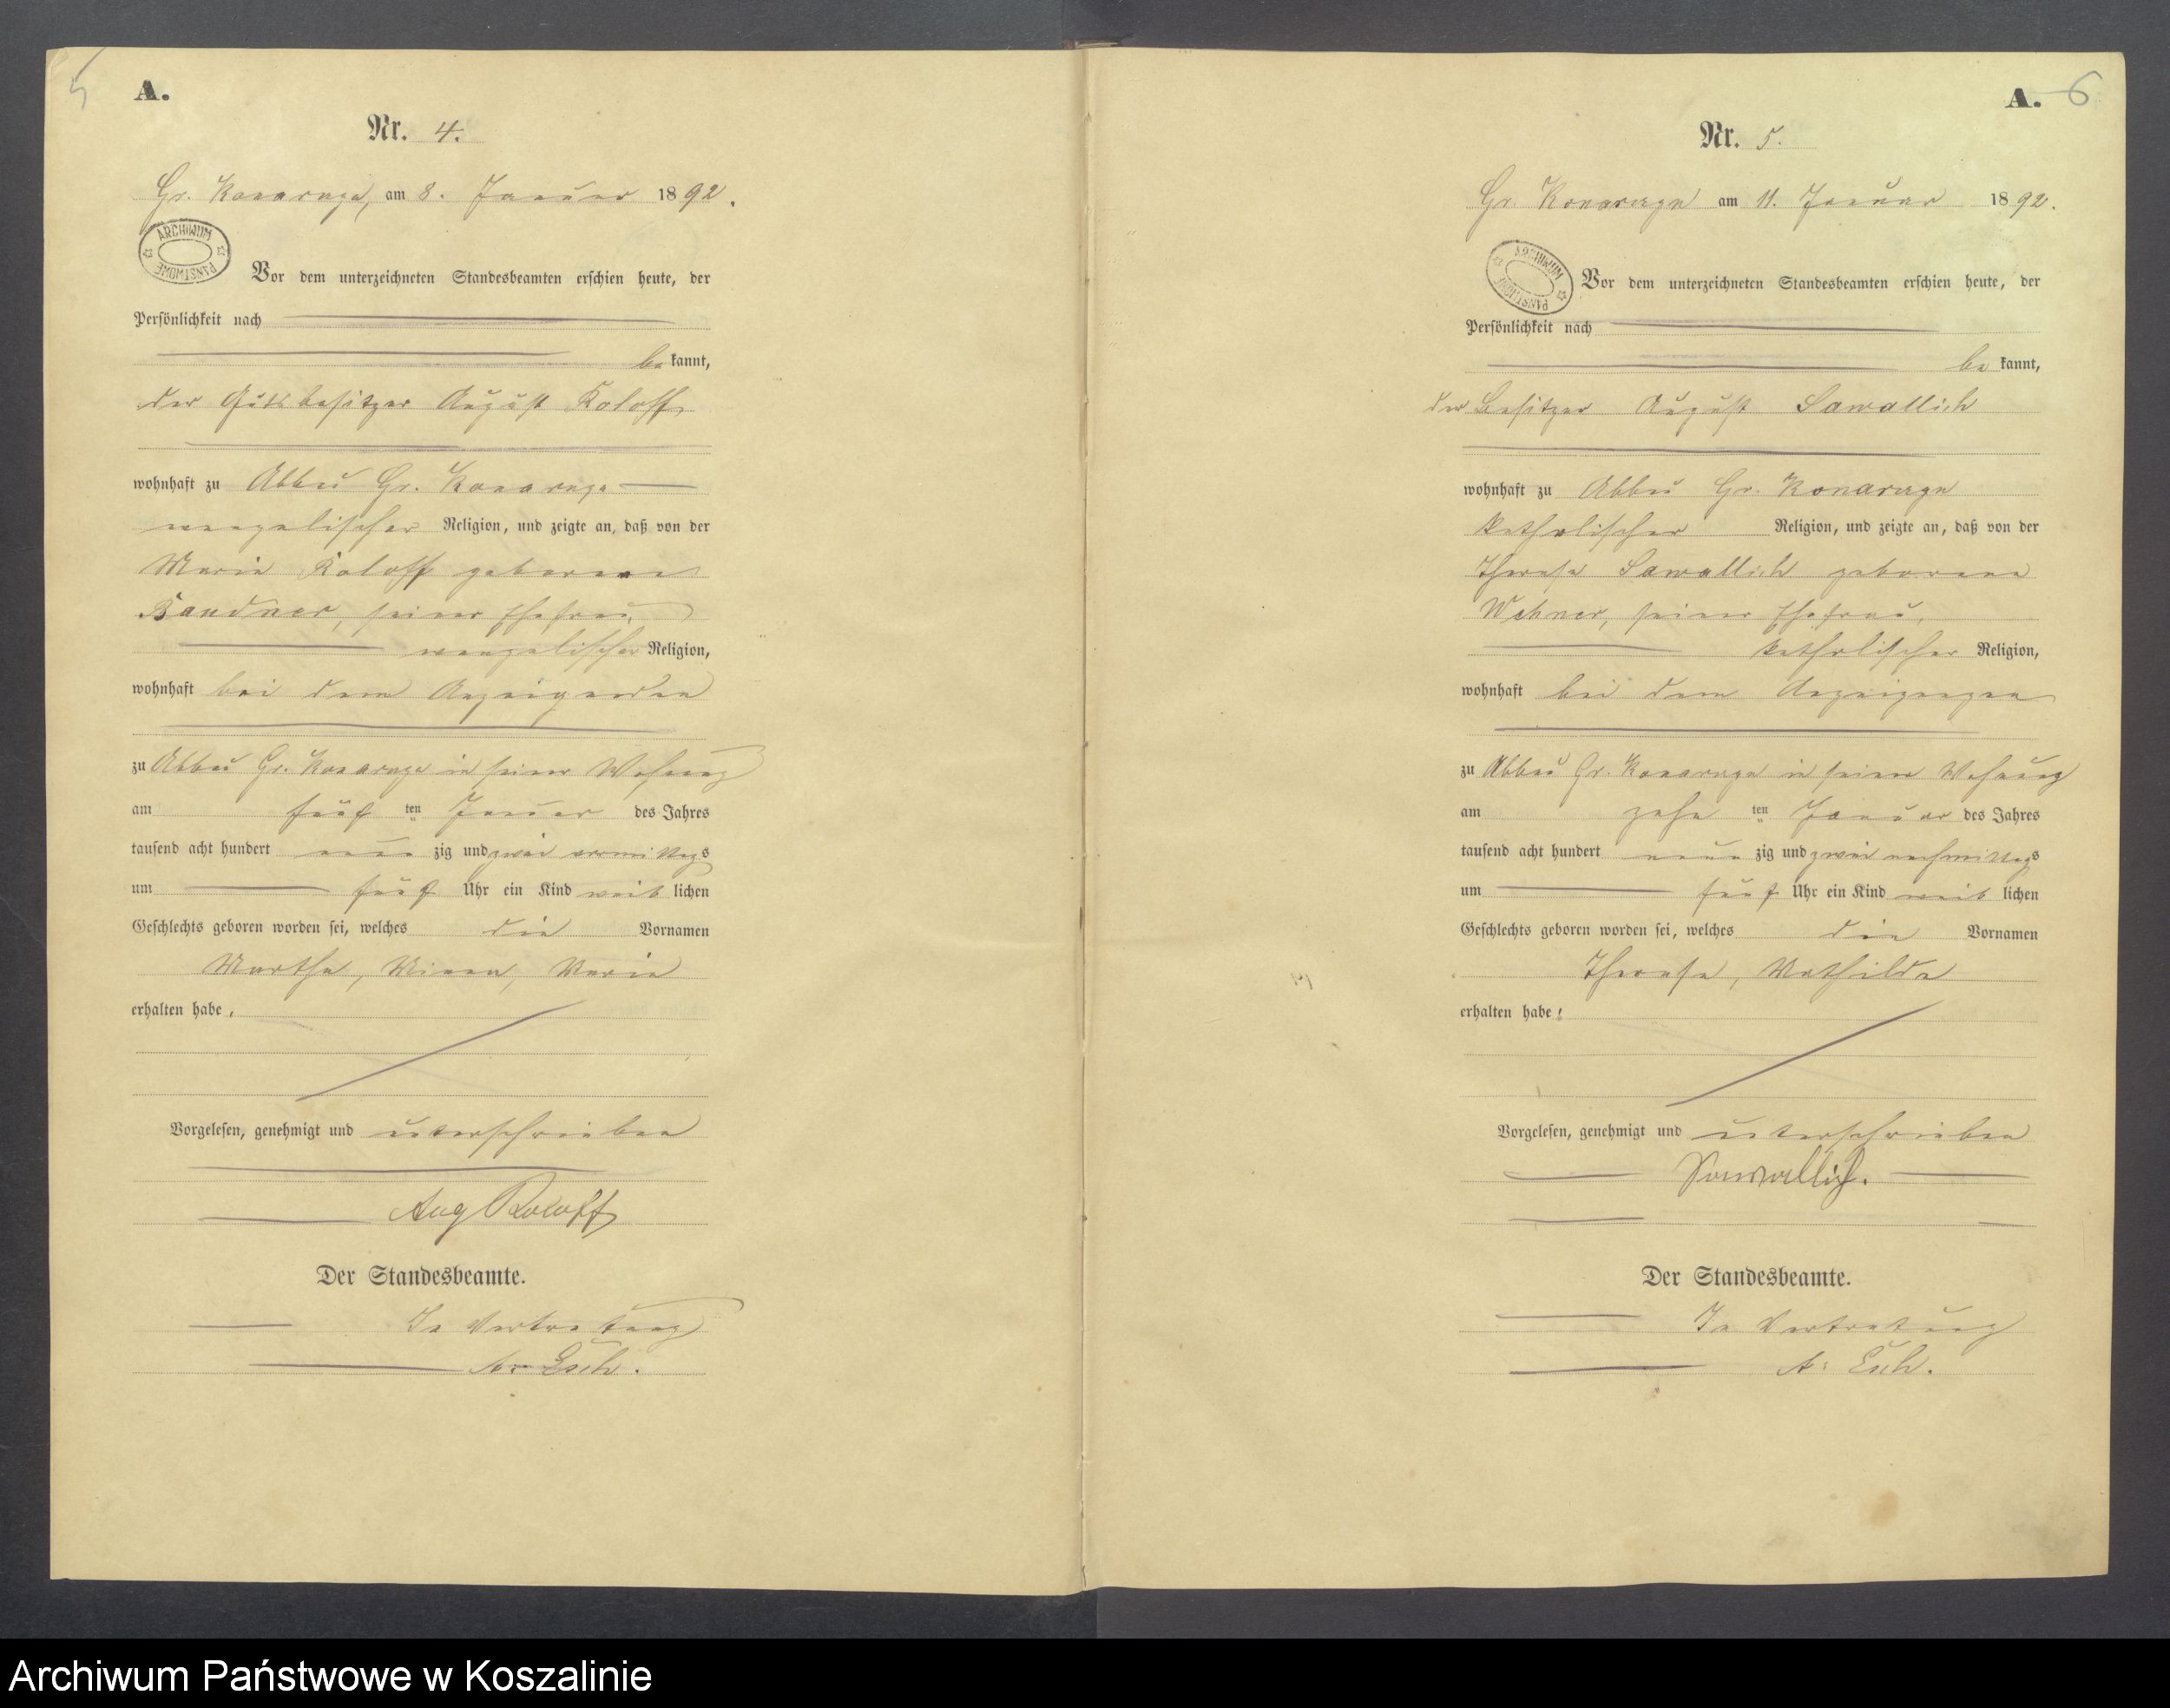 5
A.
Nr. 4.
Gr. Konarczyn, am 8. Januar 1892.
ARCHIWUM PAŃSTWOWE
Vor dem unterzeichneten Standesbeamten erschien heute, der
Persönlichkeit nach
bekannt,
der Gutsbesitzer August Roloff
wohnhaft zu Abbau Gr. Konarczyn
evangelischer Religion, und zeigte an, daß von der
Marie Roloff geborene
Bandner, seiner Ehefrau,
evangelischer Religion,
wohnhaft bei dem Anzeigenden
zu Abbau Gr. Konarczyn in seiner Wohnung
am fünf ten Januar des Jahres
tausend acht hundert neun zig und zwei vormittags
um fünf Uhr ein Kind weib lichen
Geschlechts geboren worden sei, welches die Vornamen
Martha, Minna, Marie
erhalten habe.
Vorgelesen, genehmigt und unterschrieben
Aug Roloff
Der Standesbeamte.
In Vertretung
A. Esch.
A. 6
Nr. 5.
Gr. Konarczyn am 11. Januar 1892.
ARCHIWUM PAŃSTWOWE
Vor dem unterzeichneten Standesbeamten erschien heute, der
Persönlichkeit nach
bekannt,
der Besitzer August Sawallich
wohnhaft zu Abbau Gr. Konarczyn
katholischer Religion, und zeigte an, daß von der
Therese Sawallich geborene
Wehner, seiner Ehefrau,
katholischer Religion,
wohnhaft bei dem
zu Abbau Gr. Konarczyn in seiner Wohnung
am zehn ten Januar des Jahres
tausend acht hundert neun zig und zwei nachmittags
um fünf Uhr ein Kind weib lichen
Geschlechts geboren worden sei, welches die Vornamen
Therese, Mathilde
erhalten habe.
Vorgelesen, genehmigt und unterschrieben
Sawallich.
Der Standesbeamte.
In Vertretung
A. Esch.
Archiwum Państwowe w Koszalinie